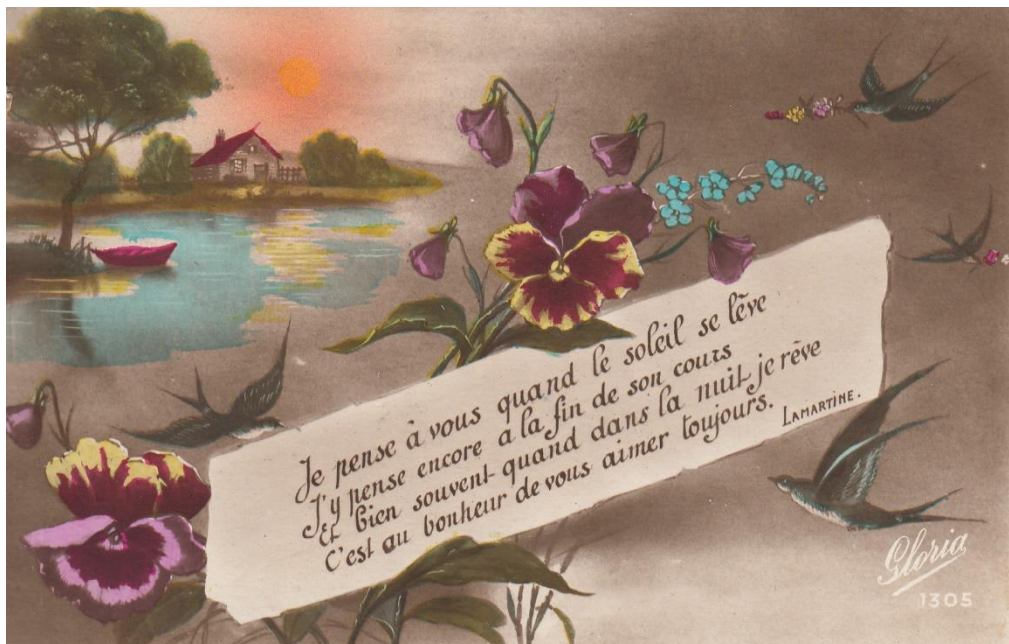 Je pense à vous quand le soleil se lève
J'y pense encore a la fin de son cours
Et bien souvent quand dans la nuit je rêve
C'est au bonheur de vous aimer toujours.
LAMARTINE.
Gloria
1305